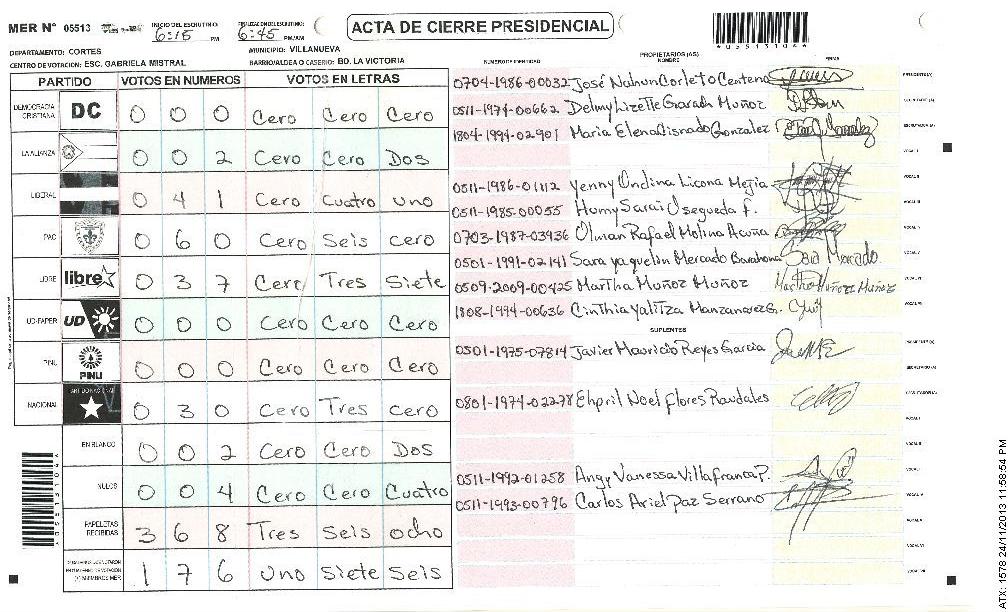 MER N° 05513
INICIO DEL ESCRUTINIO: 6:15 PM
FINALIZACION DEL ESCRUTINIO: 6:45 PM/AM
ACTA DE CIERRE PRESIDENCIAL
DEPARTAMENTO: CORTES
MUNICIPIO: VILLANUEVA
CENTRO DE VOTACION: ESC. GABRIELA MISTRAL
BARRIO/ALDEA O CASERIO: BO. LA VICTORIA
PARTIDO VOTOS EN NUMEROS VOTOS EN LETRAS
DEMOCRACIA CRISTIANA DC 0 0 0 Cero Cero Cero
LA ALIANZA 0 0 2 Cero Cero Dos
LIBERAL 0 4 1 Cero Cuatro uno
PAC 0 6 0 Cero Seis cero
LIBRE libre 0 3 7 Cero Tres Siete
UD-FAPER UD 0 0 0 Cero Cero Cero
PINU PINU 0 0 0 Cero Cero Cero
NACIONAL 0 3 0 Cero Tres cero
EN BLANCO 0 0 2 Cero Cero Dos
NULOS 0 0 4 Cero Cero Cuatro
PAPELETAS RECIBIDAS 3 6 8 Tres Seis ocho
1 7 6 uno Siete Seis
PROPIETARIOS (AS)
NUMERO DE IDENTIDAD NOMBRE FIRMA
0704-1986-00032 José Nahun Corleto Centeno PRESIDENTE(A)
0511-1974-00662 Delmy Lizette Garada Muñoz
1804-1994-02901 Maria Elena Cisnado Gonzalez
0511-1986-01112 Yenny Ondina Licona Mejia
0511-1985-00055 Humy Sarai Osegueda F.
0703-1987-03936 Olman Rafael Molina Acuña
0501-1991-02141 Sara yaquelin Mercado Barahona Sara Mercado
0509-2009-00425 Martha Muñoz Muñoz Martha Muñoz Muñoz
1808-1994-00636 Cinthia Yalitza Manzanarez G.
SUPLENTES
0501-1975-07814 Javier Mauricio Reyes Garcia
0801-1974-02278 Ehpril Noel Flores Raudales
0511-1992-01258 Angy Vanessa Villafranca P.
0511-1993-00796 Carlos Ariel Paz Serrano
ATX: 1578 24/11/2013 11:58:54 PM